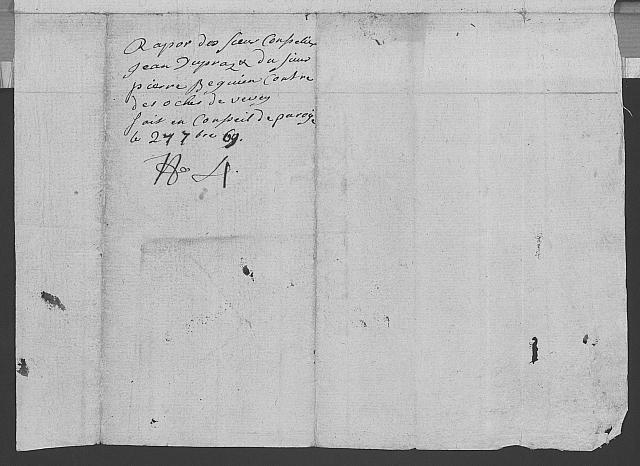 Rapor des sieur Conseiller
Jean Dupraz & du sieur
pierre Beguin Contre
des oches de vevey
fait en Conseil de paroisse
le 27 7bre 69.
No 4.